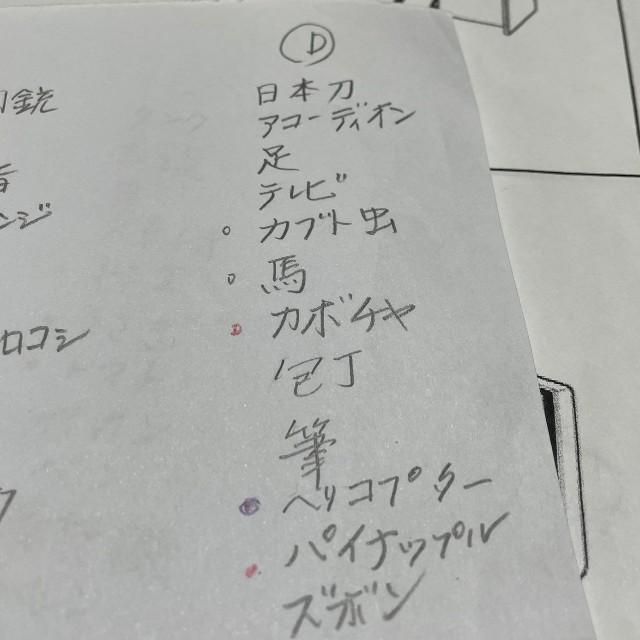 Ⓓ
日本刀
アコーディオン
足
テレビ
カブト虫
馬
カボチャ
包丁
筆
ヘリコプター
パイナップル
ズボン
銃
ンジ
ロコシ